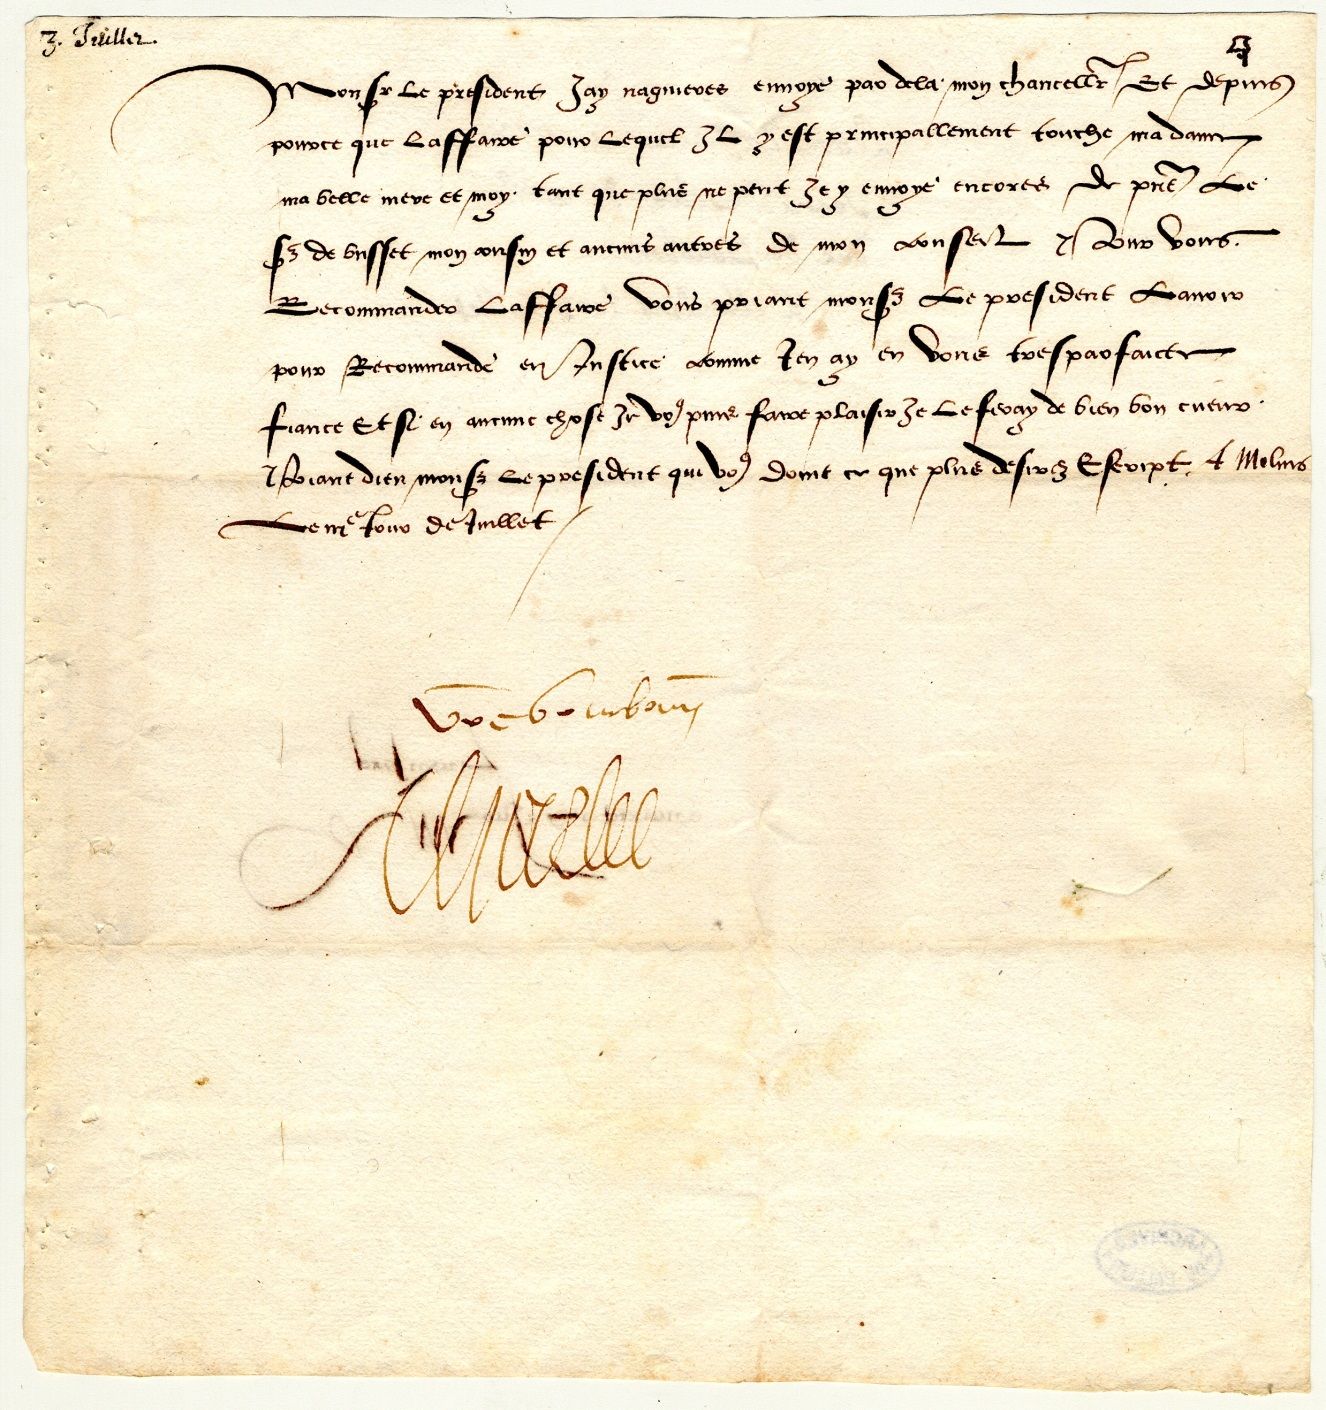 3. Juillet.
Monsr le president Jay nagueres envoye par dela mon chancellr Et depuis
pource que Laffaire pour Lequel JL y est principallement touche ma dame
ma belle mere et moy. tant que plus ne peut Je y envoye encores de pnt Le
sr de busset mon cousin et aucuns autres de mon conseil Pour vous
Recommander Laffaire vous priant monsr Le president Lavoir
pour Recommande en Justice comme Jen ay en vous tresparfaicte
fiance Et si en aucune chose Je vo9 puis faire plaisir Je Le feray de bien bon cueur.
Priant dieu monsr Le president qui vo9 doint ce que plus desirez Escript A Molins
Le iije Jour de Juillet